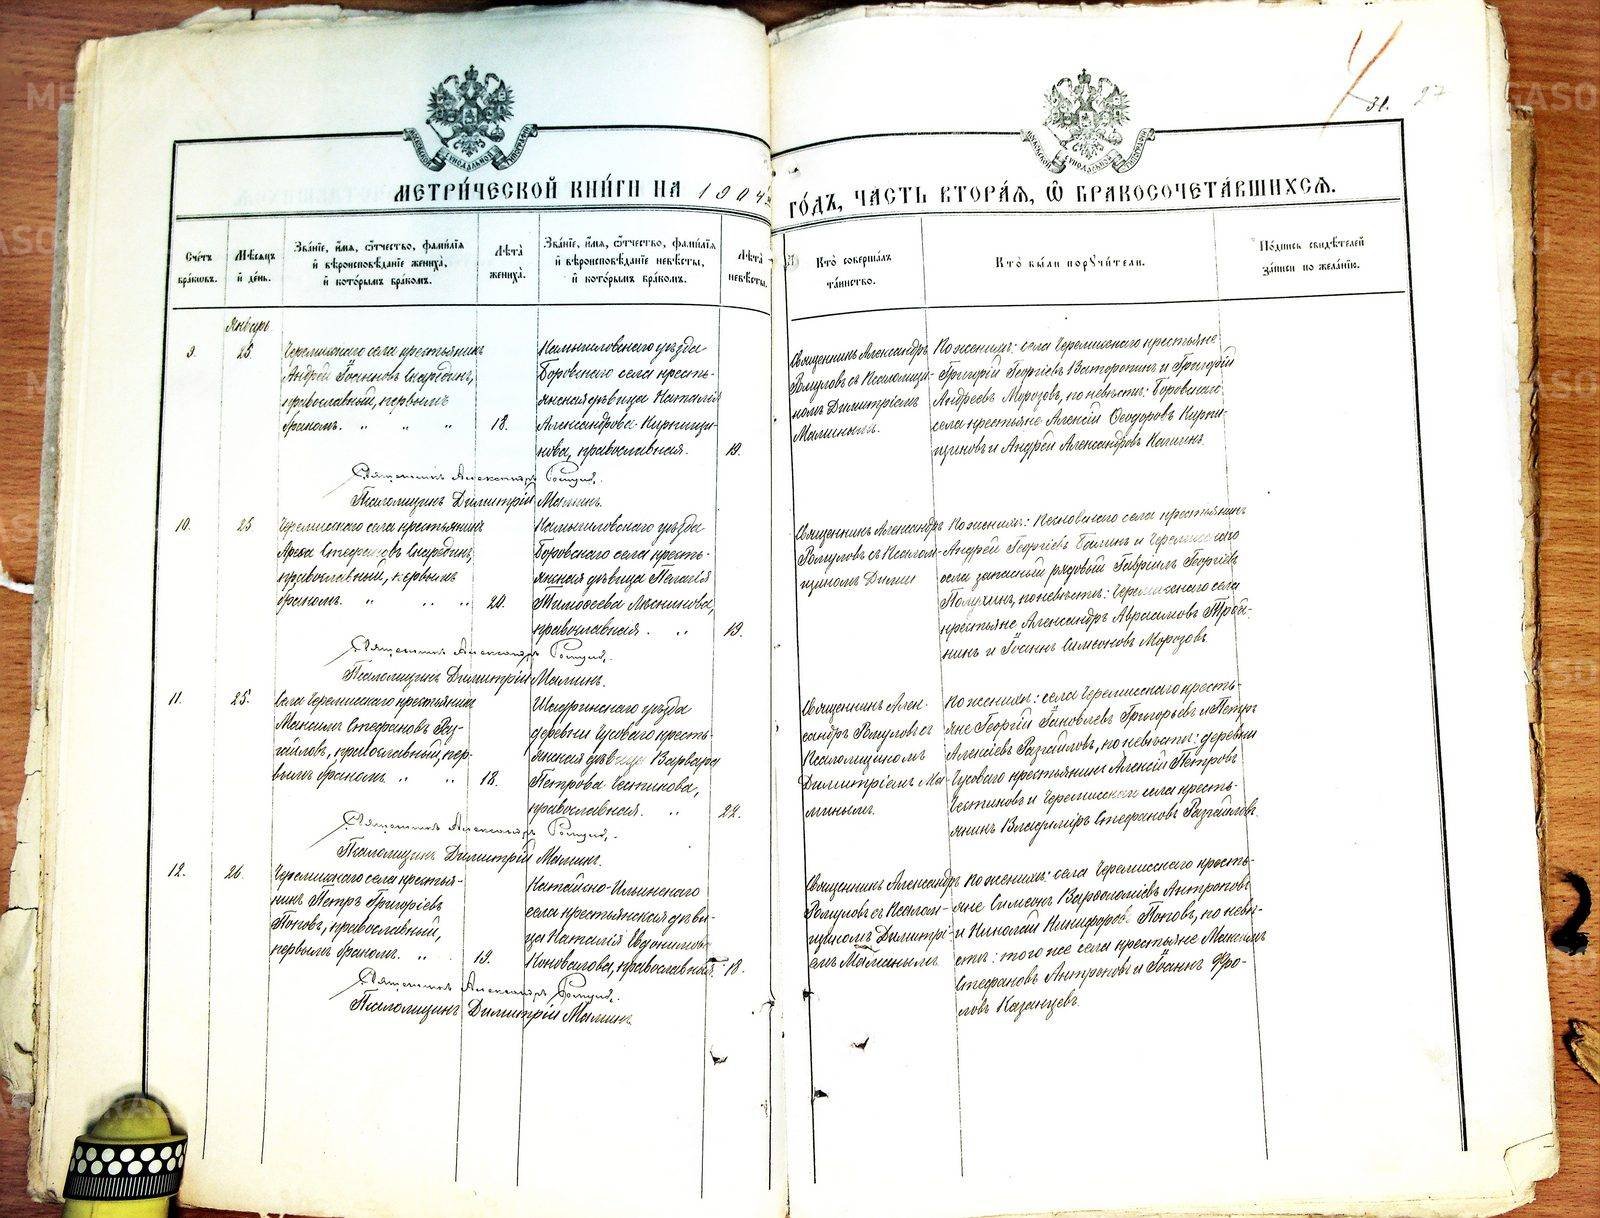 31.
27
МЕТРИ́ЧЕСКОЙ КНИ́ГИ НА 1904
ГО́ДЪ, ЧАСТЬ ВТОРА́Я, Ѡ БРАКОСОЧЕТА́ВШИХСЯ.
Сче́тъ бра́ковъ.
Мѣ́сяцъ и҆ де́нь.
Зва́нїе, и҆́мѧ, ѻ҆́тчество, фами́лїѧ и҆ вѣроисповѣ́данїе жениха̀, и҆ кото́рымъ бра́комъ.
Лѣ́та жениха̀.
Зва́нїе, и҆́мѧ, ѻ҆́тчество, фами́лїѧ и҆ вѣроисповѣ́данїе невѣ́сты, и҆ кото́рымъ бра́комъ.
Лѣ́та невѣ́сты.
Кто̀ соверша́лъ та́инство.
Кто̀ бы́ли поручи́тели.
По́дпись свидѣ́телей за́писи по жела́нїю.
Январь
9.
25.
Черемисскаго села крестьянинъ
Андрей Іоанновъ Скарединъ,
православный, первымъ
бракомъ. " " "
18.
Камышловскаго уѣзда
Боровскаго села кресть-
янская дѣвица Наталія
Александрова Кирпищи-
кова, православная.
19.
Священникъ Александръ
Ромуловъ съ Псаломщи-
комъ Димитріемъ
Малинымъ.
По женихѣ: села Черемисскаго крестьяне
Григорій Георгіевъ Ваторопинъ и Григорій
Андреевъ Морозовъ, по невѣстѣ: Боровскаго
села крестьяне Алексій Ѳеодоровъ Кирпи-
щиковъ и Андрей Александровъ
Священникъ Александръ Ромулов.
Псаломщикъ Димитрій Малинъ.
10.
25
Черемисскаго села крестьянинъ
Стефановъ Скарединъ,
православный, первымъ
бракомъ. " " "
20.
Камышловскаго уѣзда
Боровскаго села кресть-
янская дѣвица Пелагія
Тимоѳеева
православная. "
19.
Священникъ Александръ
Ромуловъ съ Псалом-
щикомъ Дими
По женихѣ: села крестьянинъ
Андрей Георгіевъ и Черемисскаго
села запасный рядовый Гавріилъ Георгіевъ
по невѣстѣ: Черемисскаго села
крестьяне Александръ Авраамовъ
и Іоаннъ Симеоновъ Морозовъ
Священникъ Александръ Ромулов.
Псаломщикъ Димитрій Малинъ.
11.
25.
Села Черемисскаго крестьянинъ
Максимъ Стефановъ Раз-
гайловъ, православный, пер-
вымъ бракомъ. " "
18.
Шадринскаго уѣзда
деревни Гусеваго кресть-
янская дѣвица Варвара
Петрова Честикова,
православная. "
22.
Священникъ Алек-
сандръ Ромуловъ съ
Псаломщикомъ
Димитріемъ Ма-
линымъ.
По женихѣ: села Черемисскаго кресть-
яне Георгій Іаковлевъ Григорьевъ и Петръ
Алексіевъ Разгайловъ, по невѣстѣ: деревни
Гусеваго крестьянинъ Алексій Петровъ
Честиковъ и Черемисскаго села кресть-
янинъ Владиміръ Стефановъ Разгайловъ
Священникъ Александръ Ромулов.
Псаломщикъ Димитрій Малинъ.
12.
26.
Черемисскаго села крестья-
нинъ Петръ Григоріевъ
Поповъ, православный,
первымъ бракомъ. "
19.
Катайско-Ильинскаго
села крестьянская дѣви-
ца Наталія Евдокимова
Коновалова, православная.
18.
Священникъ Александръ
Ромуловъ съ Псалом-
щикомъ Димитрі-
емъ Малинымъ
По женихѣ: села Черемисскаго кресть-
яне Симеонъ Варѳоломіевъ Антроповъ
и Николай Никифоровъ Поповъ, по невѣ-
стѣ: того же села крестьяне Максимъ
Стефановъ Антроповъ и Іоаннъ Фро-
ловъ Казанцевъ
Священникъ Александръ Ромулов.
Псаломщикъ Димитрій Малинъ